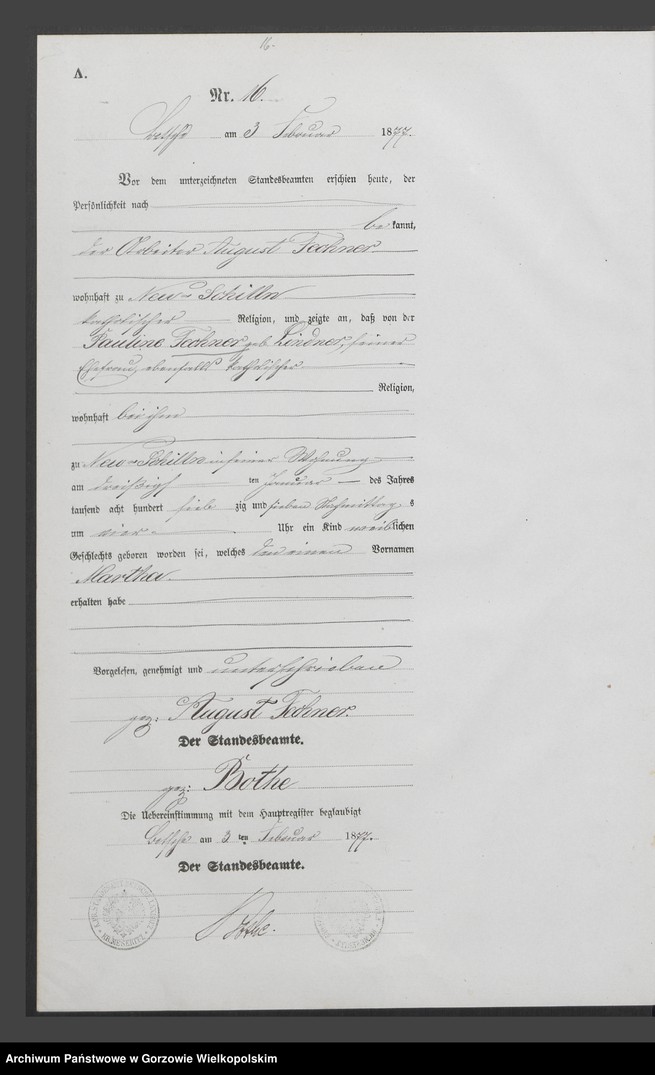 16.
A.
Nr. 16.
Betsche am 3 Februar 1877.
Vor dem unterzeichneten Standesbeamten erschien heute, der
Persönlichkeit nach
bekannt,
der Arbeiter August Fechner
wohnhaft zu Neu-Schilln
katholischer Religion, und zeigte an, daß von der
Pauline Fechner geb. Lindner, seiner
Ehefrau, ebenfalls katholischer
Religion,
wohnhaft bei ihm
zu Neu-Schilln in seiner Wohnung
am dreißigsten Januar des Jahres
tausend acht hundert siebenzig und sieben Nachmittags
um vier Uhr ein Kind weiblichen
Geschlechts geboren worden sei, welches den einen Vornamen
Martha
erhalten habe
Vorgelesen, genehmigt und unterschrieben
gez: August Fechner.
Der Standesbeamte.
gez: Bothe
Die Uebereinstimmung mit dem Hauptregister beglaubigt
Betsche am 3 ten Februar 1877.
Der Standesbeamte.
KR. MESERITZ
Bothe.
Archiwum Państwowe w Gorzowie Wielkopolskim